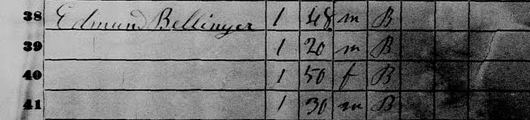 38 Edmund Bellinger 1 48 m B
39 1 20 m B
40 1 50 f B
41 1 30 m B